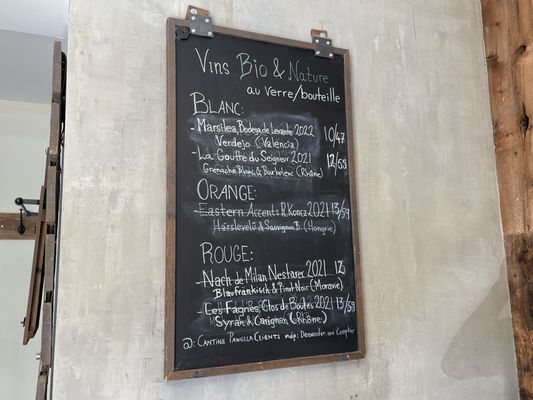 Vins Bio & Nature
au verre/bouteille
Blanc:
- Marsilea, Bodega de Levante 2022 10/47
Verdejo (Valencia)
- La Gouffre du Seigneur 2021 12/55
Grenache Blanc & Bourboulenc (Rhône)
Orange:
- Eastern Accents R. Koncz 2021 13/59
Hárslevelű & Sauvignon B. (Hongrie)
Rouge:
- Nach de Milan Nestarec 2021 12
Blaufränkisch & Pinot Noir (Moravie)
- Les Fagnes, Clos de Boutes 2021 13/59
Syrah & Carignan (Rhône)
@: Cantine Panella Clients mdp: Demander au Comptoir